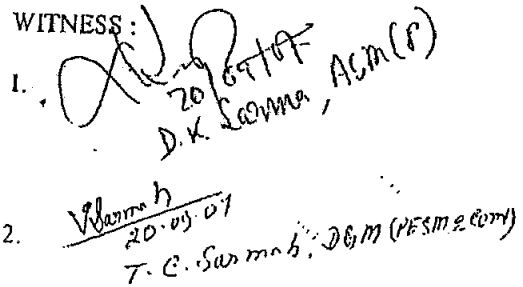 WITNESS :
1.
20/07/07
D.K. Sarma, AGM(P)
2. Sarmah
20.07.07
T. C. Sarmah, DGM (PESM & Com)